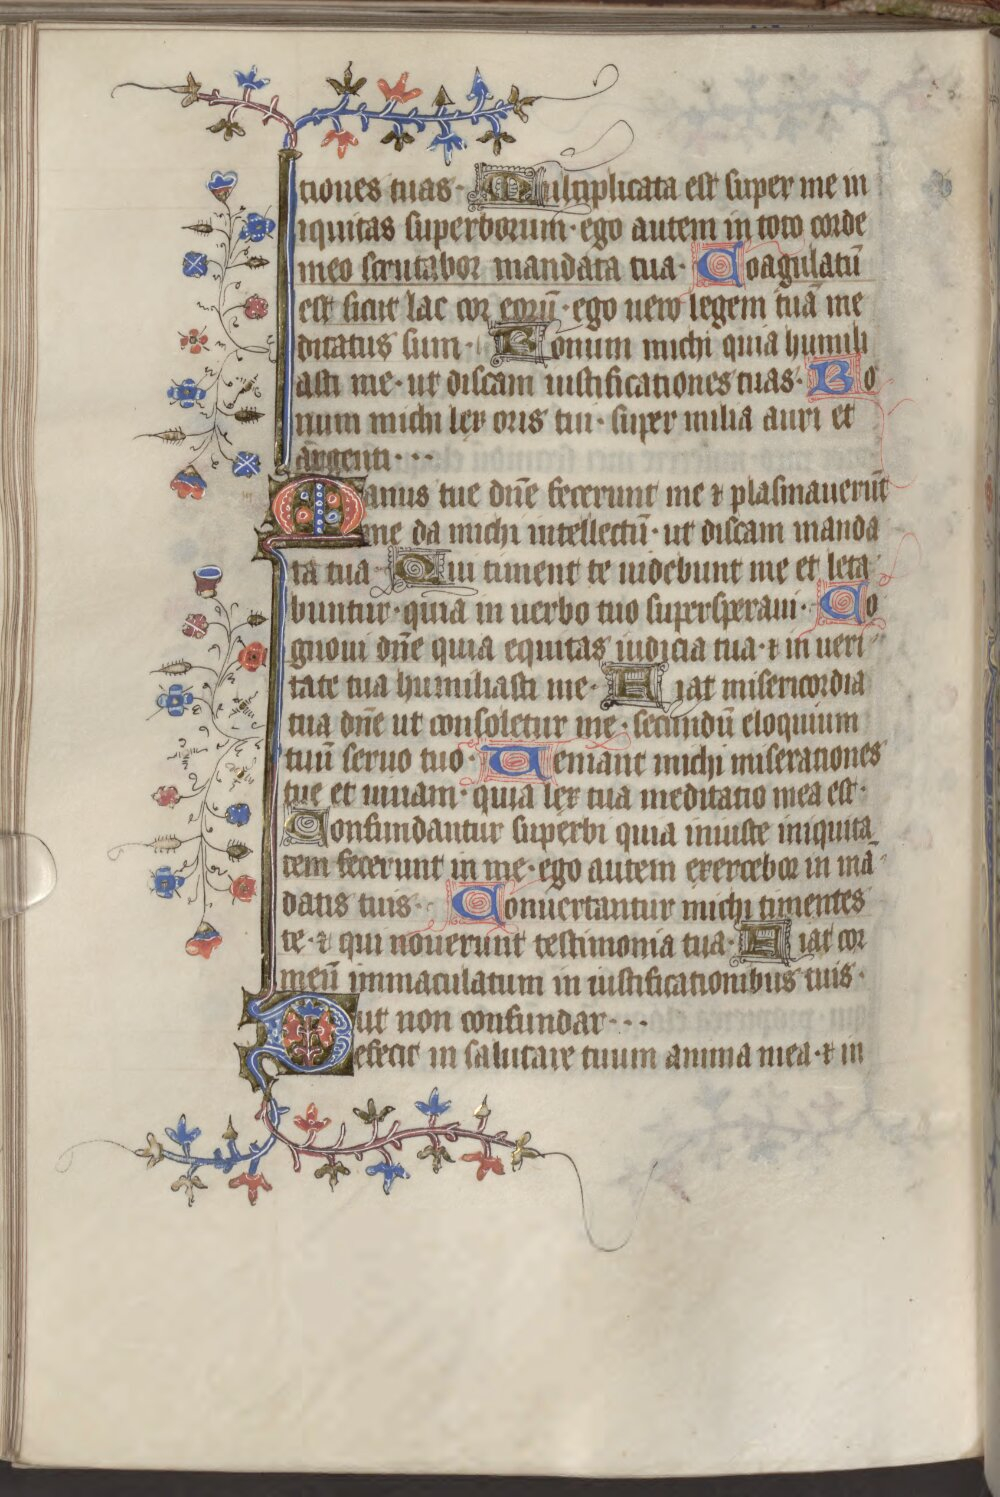 tiones tuas· Multiplicata est super me in
iquitas superborum· ego autem in toto corde
meo scrutabor mandata tua· Coagulatū
est sicut lac cor eorū· ego uero legem tuā me
ditatus sum· Bonum michi quia humili
asti me· ut discam iustificationes tuas· Bo
num michi lex oris tui· super milia auri et
argenti···
Manus tue dn̄e fecerunt me ⁊ plasmauerūt
me da michi intellectū· ut discam manda
ta tua Qui timent te uidebunt me et leta
buntur· quia in uerbo tuo supersperaui· Co
gnoui dn̄e quia equitas iudicia tua· ⁊ in ueri
tate tua humiliasti me· Fiat misericordia
tua dn̄e ut consoletur me· secundū eloquium
tuū seruo tuo· Ueniant michi miserationes
tue et uiuam· quia lex tua meditatio mea est·
Confundantur superbi quia iniuste iniquita
tem fecerunt in me· ego autem exercebor in mā
datis tuis· Conuertantur michi timentes
te· ⁊ qui nouerunt testimonia tua· Fiat cor
meū immaculatum in iustificationibus tuis·
ut non confundar···
Defecit in salutare tuum anima mea· ⁊ in